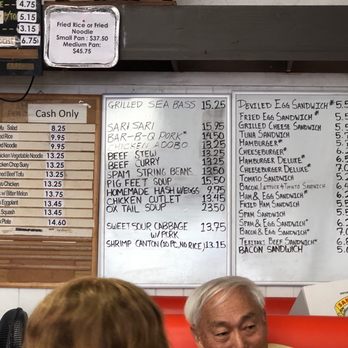 4.75
5.75
Fried Rice or Fried
Noodle
Small Pan : $37.50
Medium Pan :
$45.75
Cash Only
Salad 8.25
9.95
Vegetable Noodle 13.25
Chicken Chop Suey 13.25
Beef Tofu 13.25
Chicken 13.25
Bitter Melon 13.75
Eggplant 13.45
Squash 13.45
Plate 14.60
GRILLED SEA BASS 15.25
SARI SARI 15.75
BAR-B-Q PORK* 14.50
CHICKEN ADOBO 13.25
BEEF STEW 13.25
BEEF CURRY 13.25
SPAM STRING BEANS 13.50
PIG FEET SOUP 15.50
HOMEMADE HASH W/EGGS 9.75
CHICKEN CUTLET 13.45
OX TAIL SOUP 23.50
SWEET SOUR CABBAGE 13.75
W/PORK
SHRIMP CANTON (10 PC, NO RICE) 13.15
DEVILED EGG SANDWICH
FRIED EGG SANDWICH*
GRILLED CHEESE SANDWICH
TUNA SANDWICH
HAMBURGER*
CHEESEBURGER*
HAMBURGER DELUXE*
CHEESEBURGER DELUXE*
TOMATO SANDWICH
BACON, LETTUCE & TOMATO SANDWICH
HAM & EGG SANDWICH*
FRIED HAM SANDWICH
SPAM SANDWICH
SPAM & EGG SANDWICH*
BACON & EGG SANDWICH*
TERIYAKI BEEF SANDWICH*
BACON SANDWICH